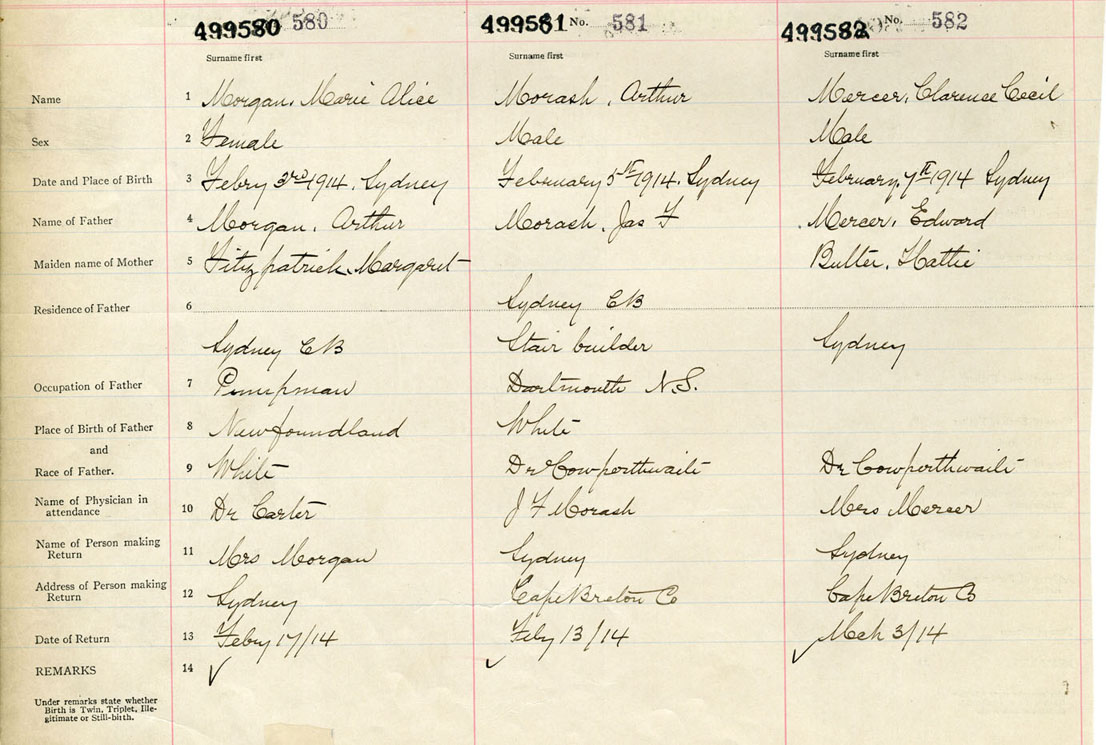 499580 580 499581 No. 581 499582 No. 582
Surname first Surname first Surname first
Name 1 Morgan, Marie Alice Morash, Arthur Mercer, Clarence Cecil
Sex 2 Female Male Male
Date and Place of Birth 3 Febry 3rd 1914, Sydney February 5th 1914, Sydney February, 7th 1914 Sydney
Name of Father 4 Morgan, Arthur Morash, Jas F Mercer, Edward
Maiden name of Mother 5 Fitzpatrick, Margaret Butler, Hattie
Residence of Father 6 Sydney CB
Sydney CB Stair builder Sydney
Occupation of Father 7 Pumpman Dartmouth N.S.
Place of Birth of Father 8 Newfoundland White
and
Race of Father. 9 White Dr Cowperthwaite Dr Cowperthwaite
Name of Physician in
attendance 10 Dr Carter J F Morash Mrs Mercer
Name of Person making
Return 11 Mrs Morgan Sydney Sydney
Address of Person making
Return 12 Sydney Cape Breton Co Cape Breton Co
Date of Return 13 Febry 17/14 Feby 13/14 Mch 3/14
REMARKS 14
Under remarks state whether
Birth is Twin, Triplet, Ille-
gitimate or Still-birth.